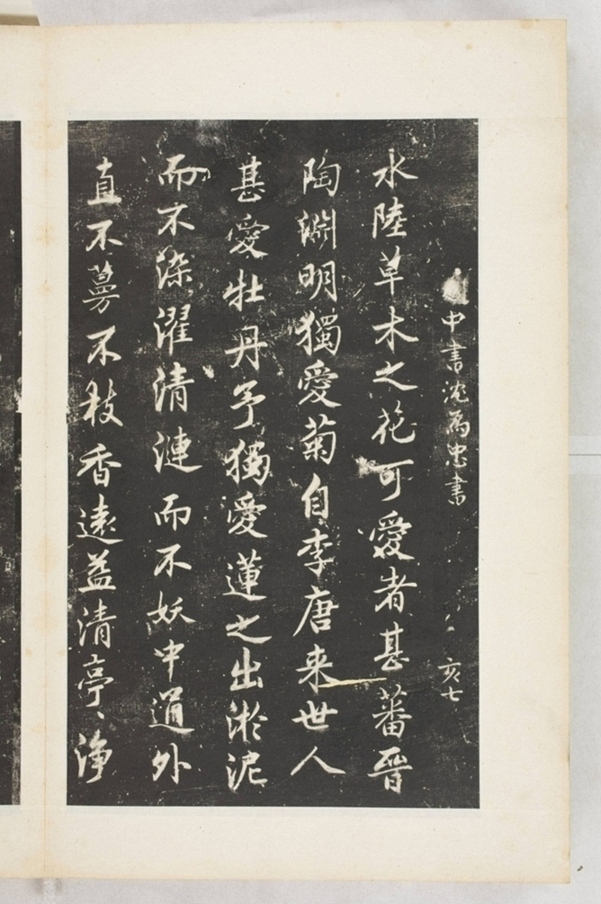 中書沈為忠書
亥七
水陸草木之花可愛者甚蕃晉
陶淵明獨愛菊自李唐来世人
甚愛牡丹予獨愛蓮之出淤泥
而不染濯清漣而不妖中通外
直不蔓不枝香遠益清亭〻淨